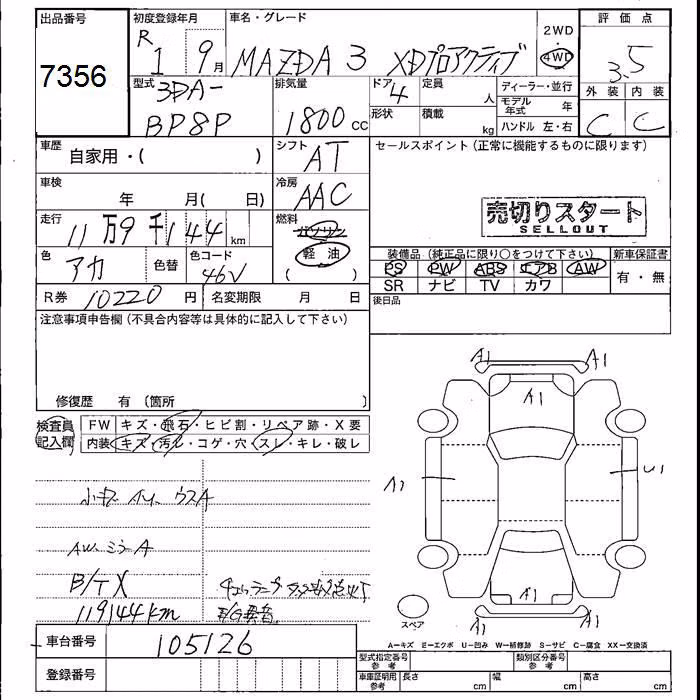 出品番号
7356
初度登録年月
R 1 9月
車名・グレード
MAZDA 3 XDプロアクティブ
2WD
・
4WD
評価点
3.5
外装 内装
C C
型式
3DA-
BP8P
排気量
1800 cc
ドア
4
定員
人
形状
積載
kg
ディーラー・並行
モデル年式 年
ハンドル 左・右
車歴
自家用・( )
シフト
AT
セールスポイント(正常に機能するものに限ります)
車検
年 月( 日)
冷房
AAC
売切りスタート
SELLOUT
走行
11万9千144km
燃料
ガソリン
軽油
( )
色
アカ
色替
色コード
46V
装備品(純正品に限り○をつけて下さい)
新車保証書
PS PW ABS エアB AW
有・無
SR ナビ TV カワ
R券 10220円
名変期限 月 日
後日品
注意事項申告欄(不具合内容等は具体的に記入して下さい)
修復歴 有 〔箇所 〕
検査員記入欄
FW キズ・飛石・ヒビ割・リペア跡・X要
内装 キズ・汚レ・コゲ・穴・スレ・キレ・破レ
A1 A1
A1
A1
U1
A1
A1
A1
AW、ミラーA
B/TX
119144km
スペア
A=キズ E=エクボ U=凹み W=補修跡 S=サビ C=腐食 XX=交換済
車台番号
105126
登録番号
型式指定番号 参考
類別区分番号 参考
車庫証明用 参考
長さ cm
幅 cm
高さ cm